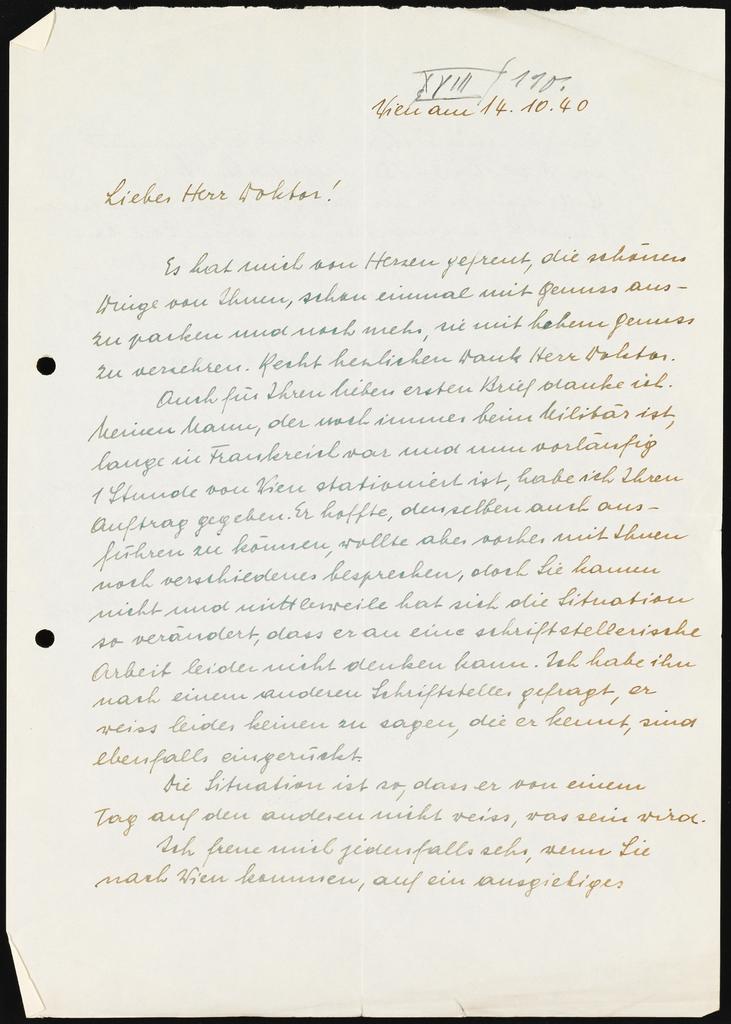 XVIII / 190.
Wien am 14. 10. 40
Lieber Herr Doktor!
Es hat mich von Herzen gefreut, die schönen
Dinge von Ihnen, schon einmal mit Genuss aus-
zu packen und noch mehr, sie mit hohem Genuss
zu verzehren. Recht herzlichen Dank Herr Doktor.
Auch für Ihren lieben ersten Brief danke ich.
Meinem Mann, der noch immer beim Militär ist,
lange in Frankreich war und nun vorläufig
1 Stunde von Wien stationiert ist, habe ich Ihren
Auftrag gegeben. Er hoffte, denselben auch aus-
führen zu können, wollte aber vorher mit Ihnen
noch verschiedenes besprechen, doch Sie kamen
nicht und mittlerweile hat sich die Situation
so verändert, dass er an eine schriftstellerische
Arbeit leider nicht denken kann. Ich habe ihn
nach einem anderen Schriftsteller gefragt, er
weiss leider keinen zu sagen, die er kennt, sind
ebenfalls eingerückt.
Die Situation ist so, dass er von einem
Tag auf den anderen nicht weiss, was sein wird.
Ich freue mich jedenfalls sehr, wenn Sie
nach Wien kommen, auf ein ausgiebiges